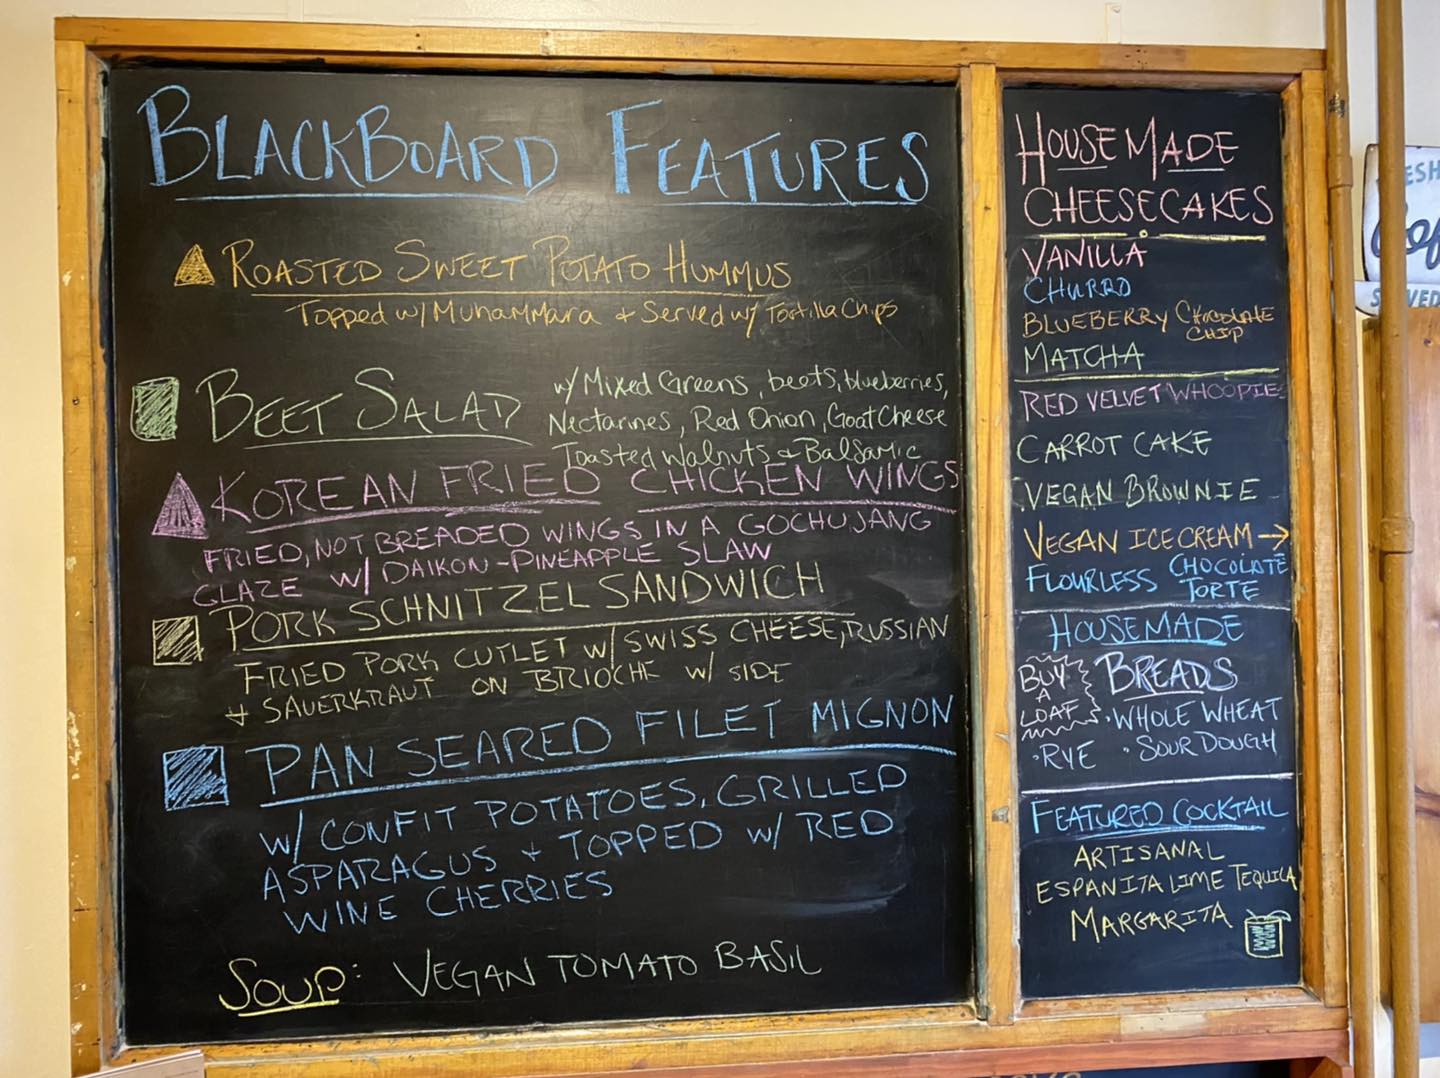 BLACKBOARD FEATURES
ROASTED SWEET POTATO HUMMUS
Topped w/ Muhammara + Served w/ Tortilla Chips
BEET SALAD
w/ Mixed Greens, beets, blueberries,
Nectarines, Red Onion, Goat Cheese
Toasted Walnuts & Balsamic
KOREAN FRIED CHICKEN WINGS
FRIED, NOT BREADED WINGS IN A GOCHUJANG
GLAZE W/ DAIKON-PINEAPPLE SLAW
PORK SCHNITZEL SANDWICH
FRIED PORK CUTLET W/ SWISS CHEESE, RUSSIAN
+ SAUERKRAUT ON BRIOCHE W/ SIDE
PAN SEARED FILET MIGNON
W/ CONFIT POTATOES, GRILLED
ASPARAGUS + TOPPED W/ RED
WINE CHERRIES
SOUP: VEGAN TOMATO BASIL
HOUSEMADE
CHEESECAKES
VANILLA
CHURRO
BLUEBERRY CHOCOLATE
CHIP
MATCHA
RED VELVET WHOOPIES
CARROT CAKE
VEGAN BROWNIE
VEGAN ICE CREAM →
FLOURLESS CHOCOLATE
TORTE
HOUSEMADE
BREADS
BUY
A
LOAF
· WHOLE WHEAT
· RYE · SOUR DOUGH
FEATURED COCKTAIL
ARTISANAL
ESPANITA LIME TEQUILA
MARGARITA